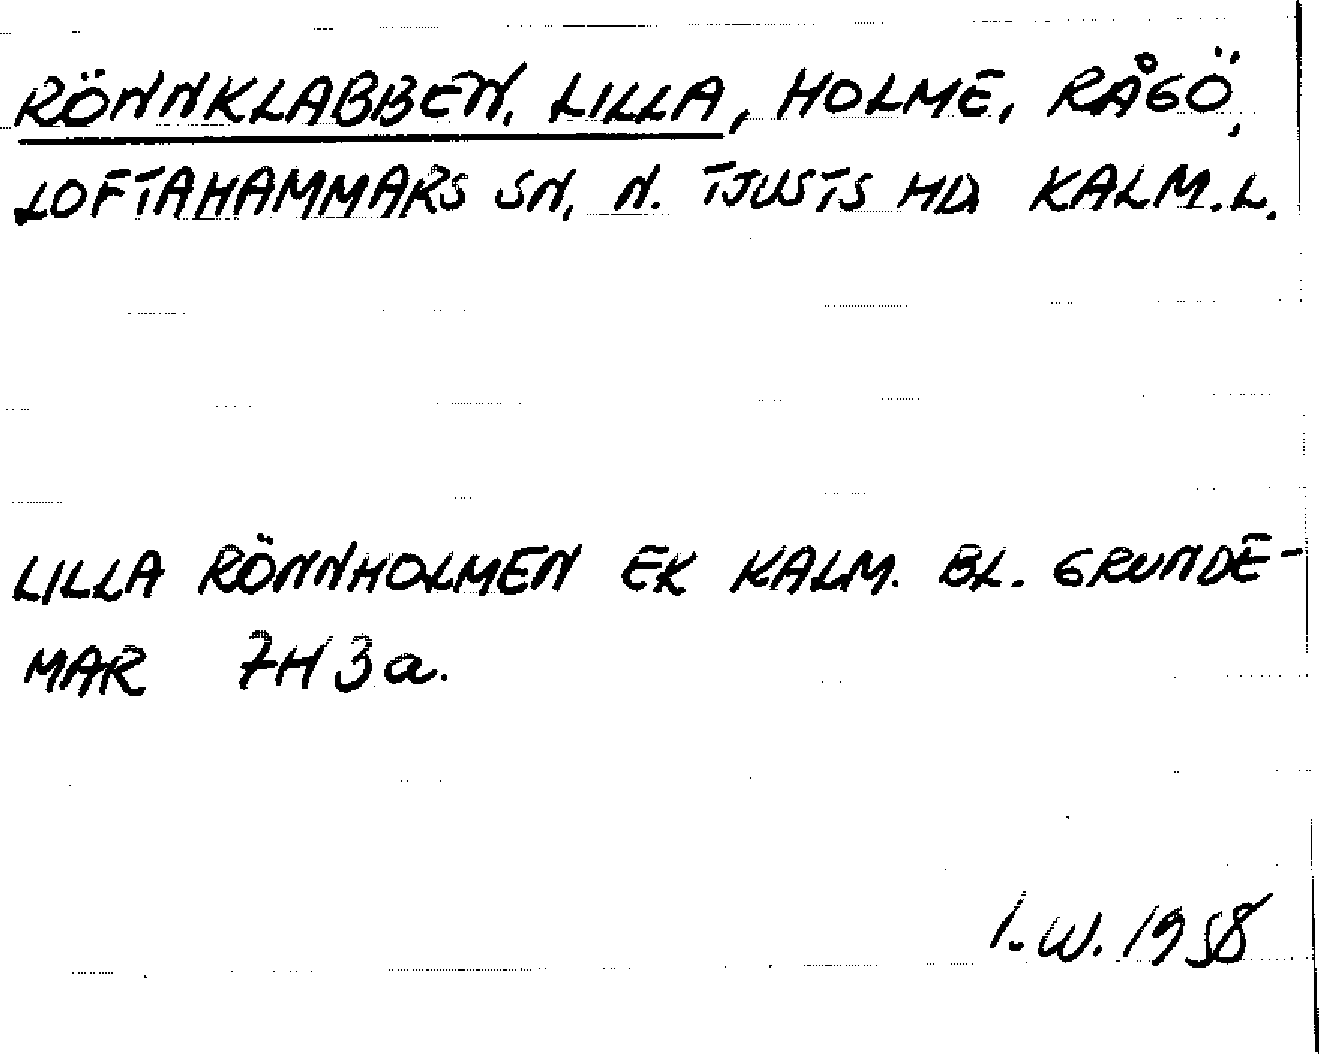 RÖNNKLABBEN, LILLA, HOLME, RÅGÖ,
LOFTAHAMMARS SN, N. TJUSTS HD KALM.L.
LILLA RÖNNHOLMEN EK KALM. BL. GRUNDE-
MAR 7H3a.
I.W. 1958